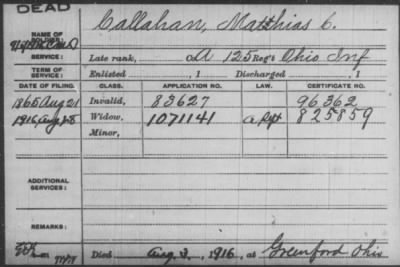 DEAD
NAME OF SOLDIER: Callahan, Matthias C.
SERVICE: Late rank, Co A 125 Reg't Ohio Inf
TERM OF SERVICE: Enlisted , 1 Discharged , 1
DATE OF FILING. CLASS. APPLICATION NO. LAW. CERTIFICATE NO.
1865 Aug 21 Invalid, 83627 96362
1916 Aug Widow, 1071141 825859
Minor,
ADDITIONAL SERVICES:
REMARKS:
Died Aug. 3, 1916, at Greenford Ohio